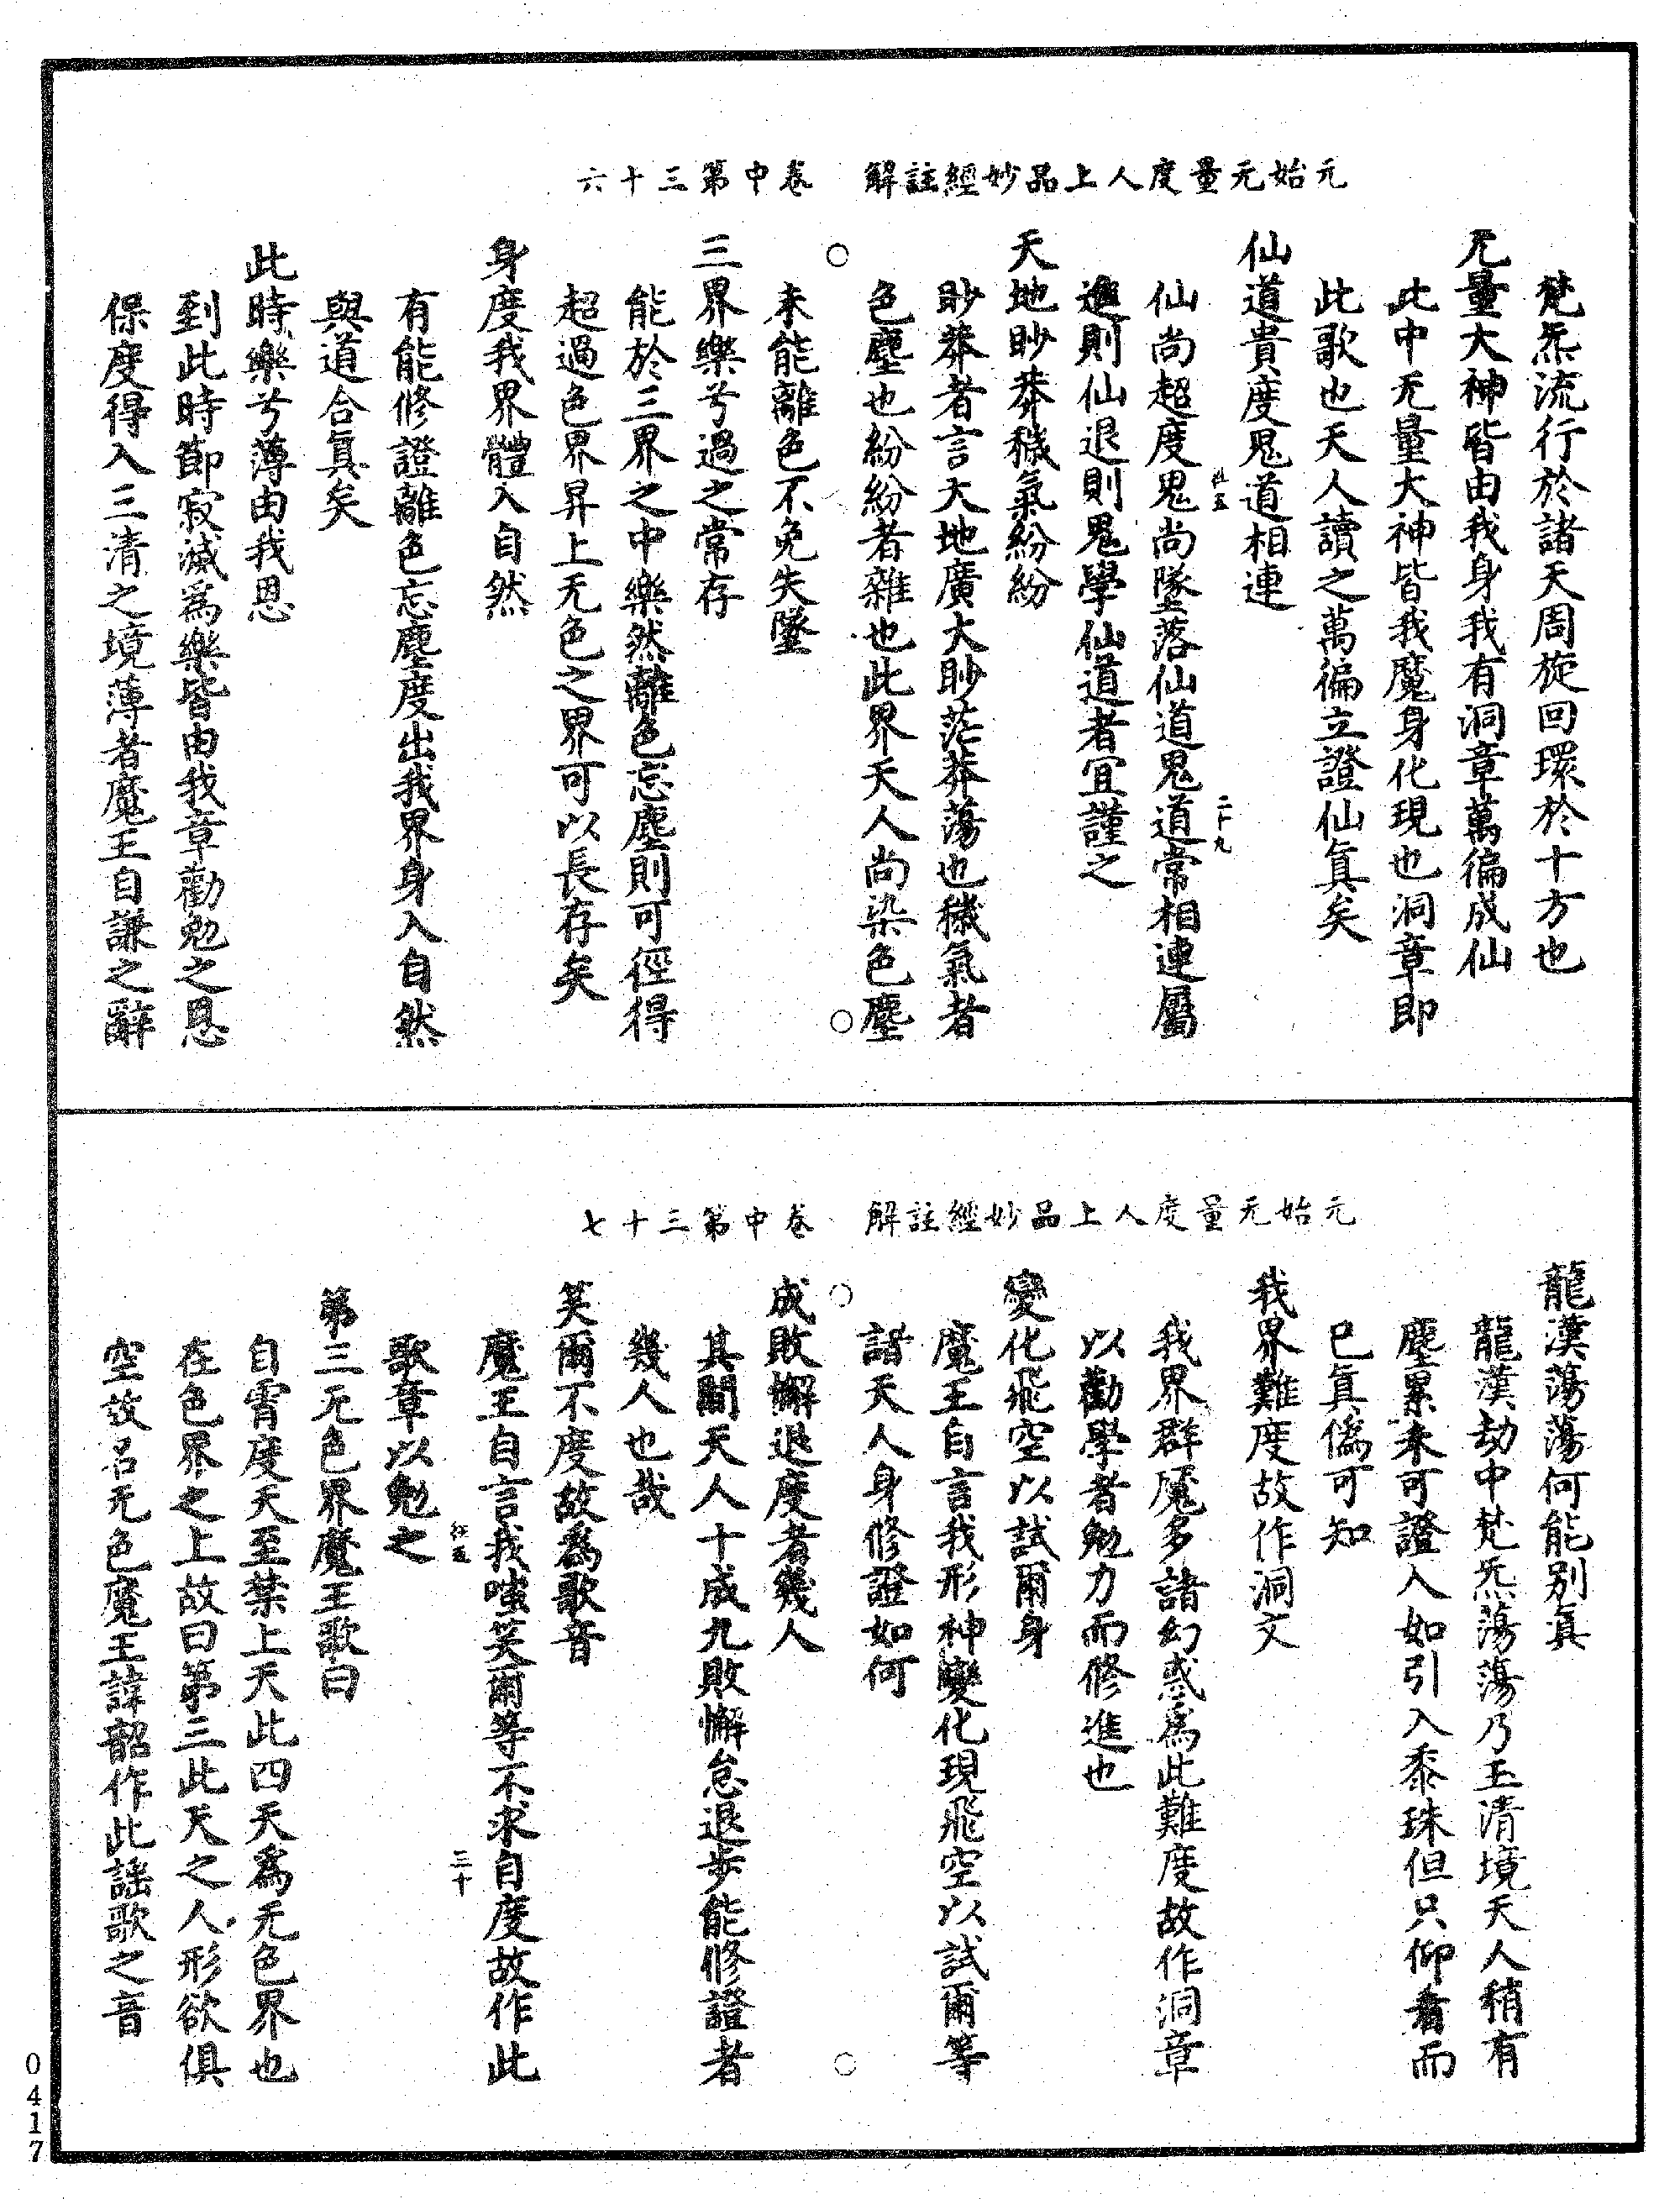 元始无量度人上品妙經註解　卷中第三十六
梵炁流行於諸天周旋回環於十方也
无量大神皆由我身我有洞章萬徧成仙
此中无量大神皆我魔身化現也洞章即
此歌也天人讀之萬徧立證仙眞矣
仙道貴度鬼道相連
仙尚超度鬼尚墜落仙道鬼道常相連屬
二十九
進則仙退則鬼學仙道者宜謹之
天地眇莽穢氣紛紛
眇莽者言天地廣大眇茫莽蕩也穢氣者
色塵也紛紛者雜也此界天人尚染色塵
未能離色不免失墜
三界樂兮過之常存
能於三界之中樂然離色忘塵則可徑得
超過色界昇上无色之界可以長存矣
身度我界體入自然
有能修證離色忘塵度出我界身入自然
與道合眞矣
此時樂兮薄由我恩
到此時節寂滅爲樂皆由我章勸勉之恩
保度得入三清之境薄者魔王自謙之辭
元始无量度人上品妙經註解　卷中第三十七
龍漢蕩蕩何能別眞
龍漢劫中梵炁蕩蕩乃玉清境天人稍有
塵累未可證入如引入黍珠但只仰看而
已眞僞可知
我界難度故作洞文
我界群魔多諸幻惑爲此難度故作洞章
以勸學者勉力而修進也
變化飛空以試爾身
魔王自言我形神變化現飛空以試爾等
諸天人身修證如何
成敗懈退度者幾人
其間天人十成九敗懈怠退步能修證者
幾人也哉
笑爾不度故爲歌音
魔王自言我嗤笑爾等不求自度故作此
三十
歌章以勉之
第三无色界魔王歌曰
自霄度天至禁上天此四天爲无色界也
在色界之上故曰第三此天之人形欲俱
空故名无色魔王諱韶作此謠歌之音
0417